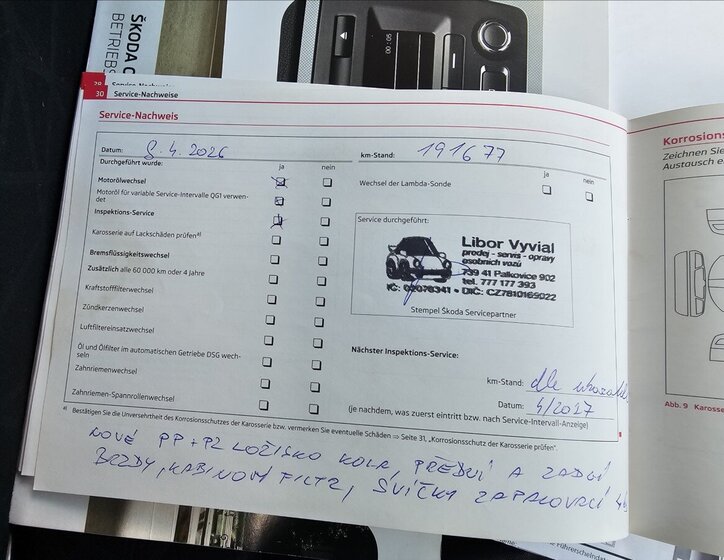 ŠKODA
BETRIEBS
05:50
00:
30 Service-Nachweise
Service-Nachweis
Datum: 8. 4. 2026
km-Stand: 191677
Durchgeführt wurde: ja nein
ja nein
Motorölwechsel
Wechsel der Lambda-Sonde
Motoröl für variable Service-Intervalle QG1 verwen-
det
Inspektions-Service
Karosserie auf Lackschäden prüfen a)
Bremsflüssigkeitswechsel
Zusätzlich alle 60 000 km oder 4 Jahre
Kraftstofffilterwechsel
Zündkerzenwechsel
Luftfiltereinsatzwechsel
Öl und Ölfilter im automatischen Getriebe DSG wech-
seln
Zahnriemenwechsel
Zahnriemen-Spannrollenwechsel
Service durchgeführt:
Libor Vyvial
prodej - servis - opravy
osobních vozů
739 41 Palkovice 902
tel. 777 177 393
IČ: 02078341 • DIČ: CZ7810165022
Stempel Škoda Servicepartner
Nächster Inspektions-Service:
km-Stand: dle
Datum: 4/2027
(je nachdem, was zuerst eintritt bzw. nach Service-Intervall-Anzeige)
a) Bestätigen Sie die Unversehrtheit des Korrosionsschutzes der Karosserie bzw. vermerken Sie eventuelle Schäden ⇒ Seite 31, „Korrosionsschutz der Karosserie prüfen".
NOVÉ PP + PZ LOŽISKO KOLA, PŘEDNÍ A ZADNÍ
BRZDY, KABINOVÝ FILTR, SVÍČKY ZAPALOVACÍ
Korrosions
Zeichnen Sie
Austausch e
Abb. 9 Karosse